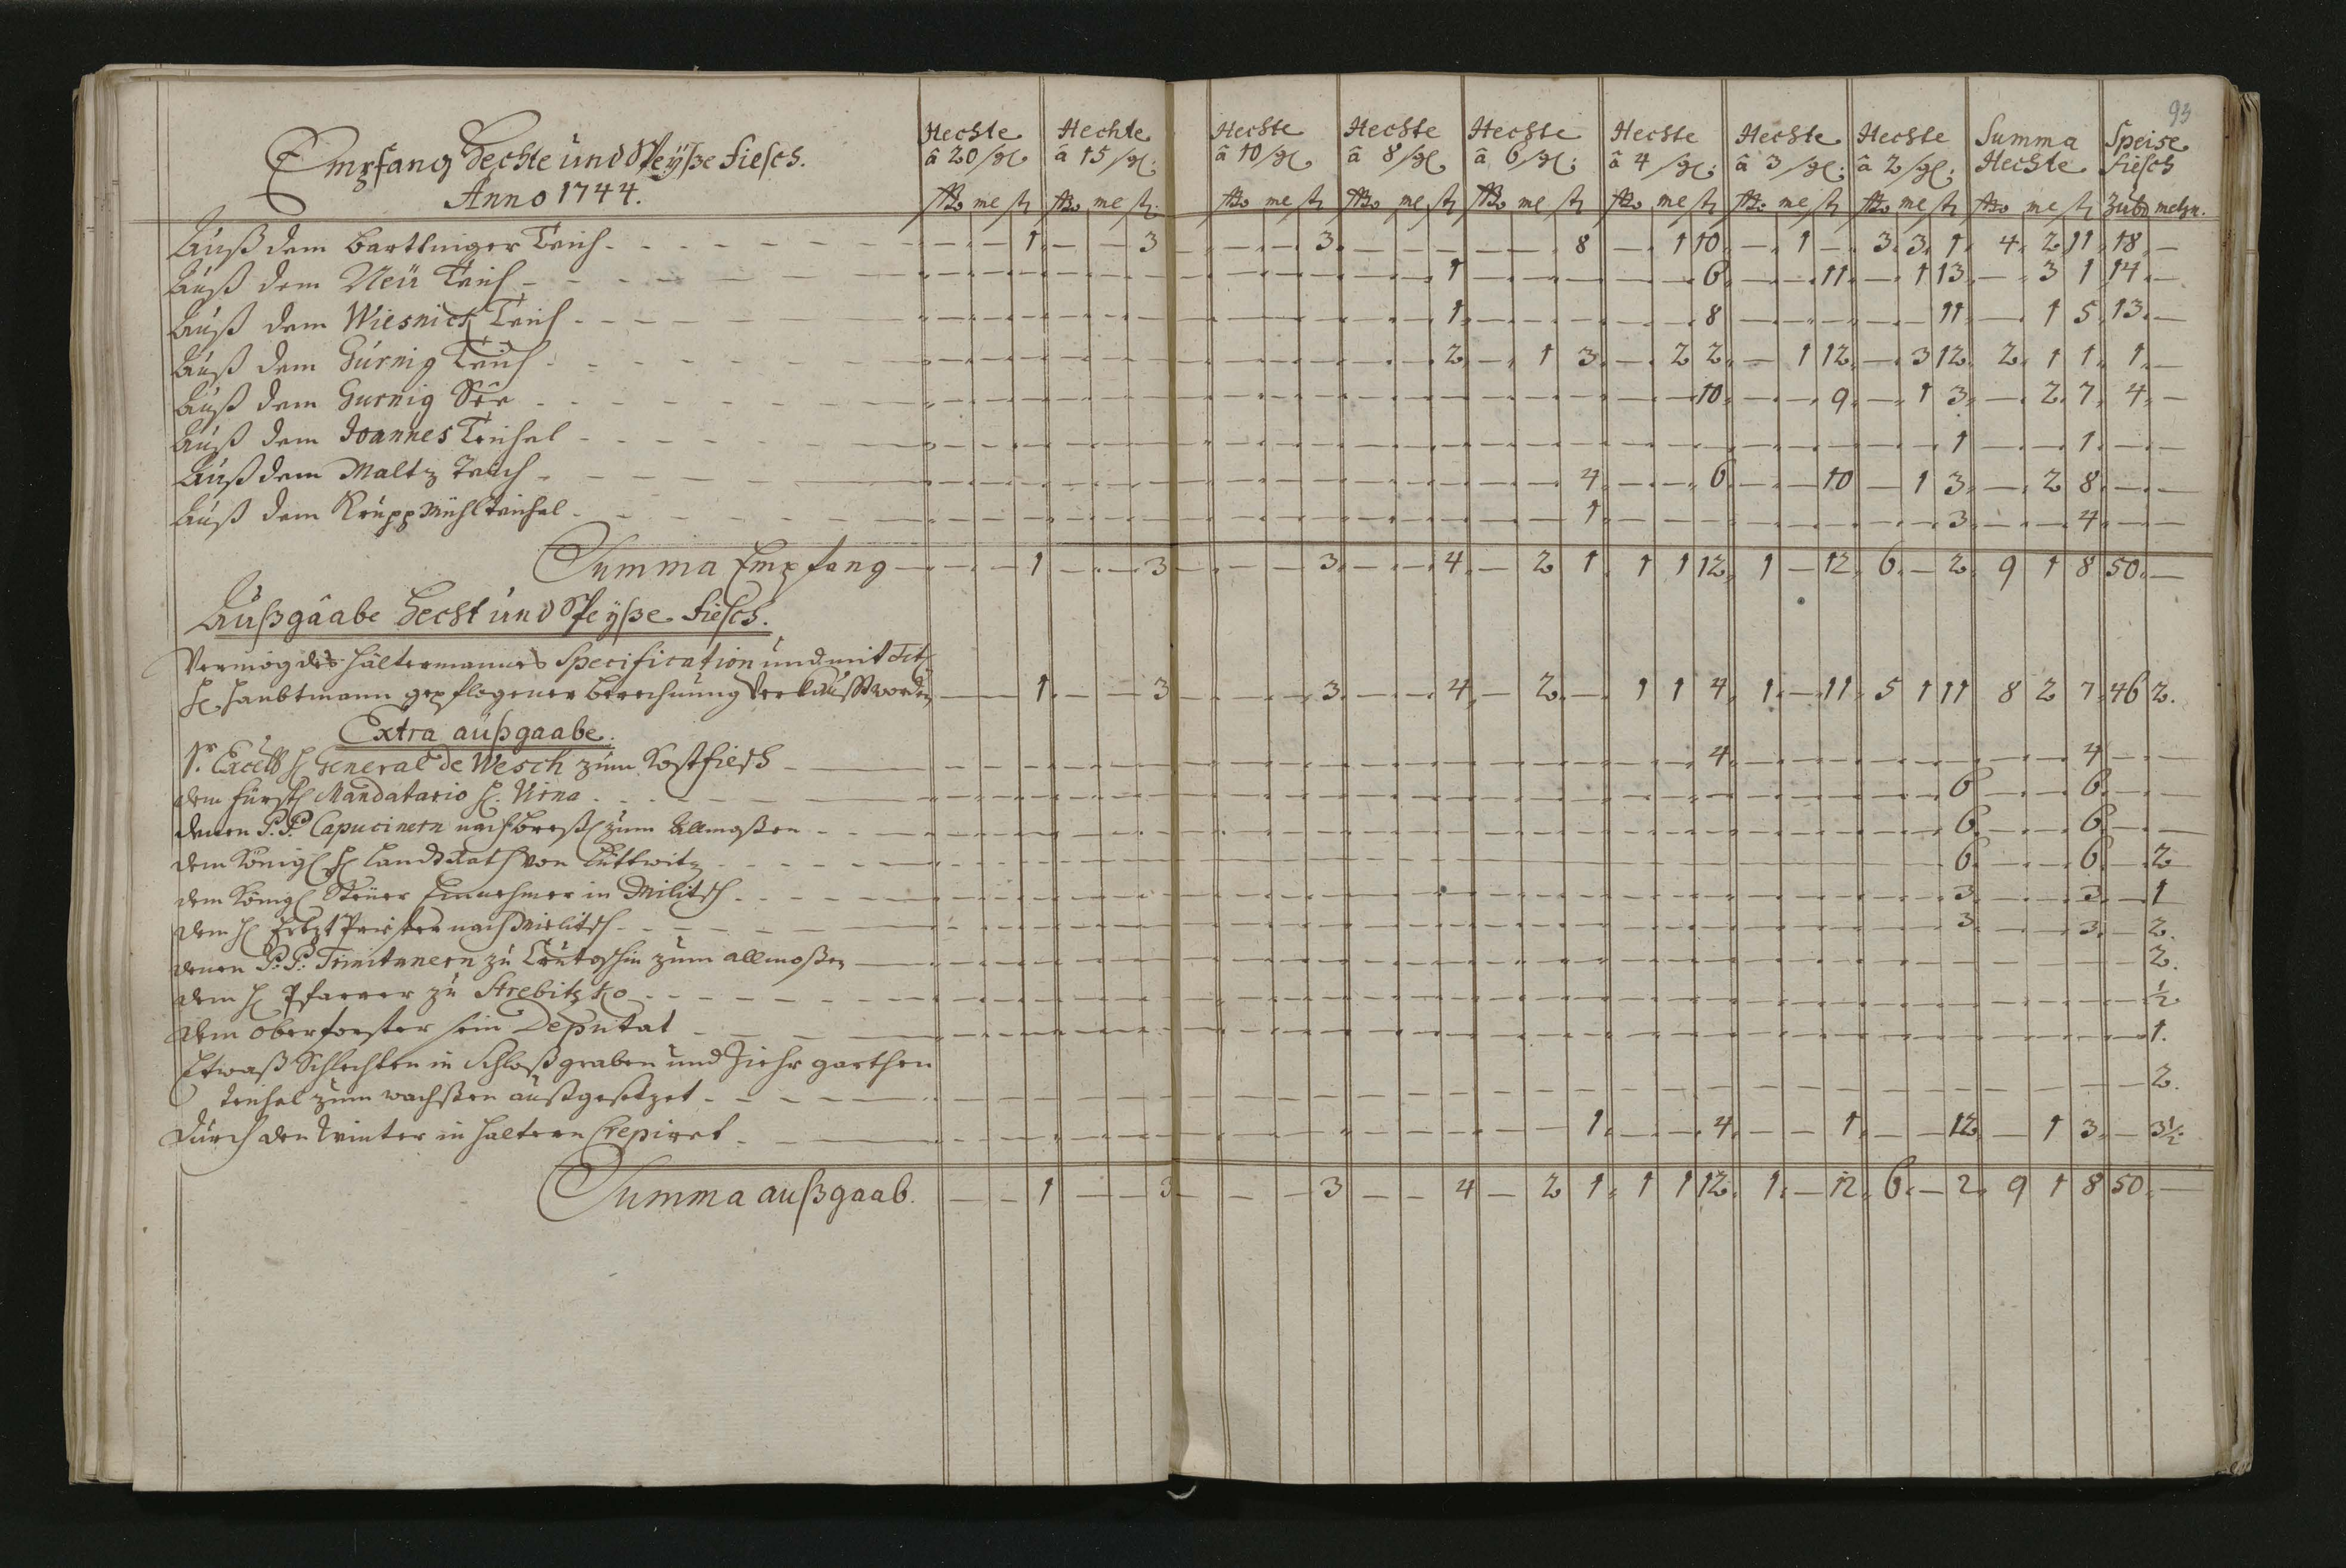 93
Empfang Hechte und Speyße fiesch.
Anno 1744.
Hechte â 20 Hechte â 15 Hechte â 10 Hechte â 8 Hechte â 6 Hechte â 4 Hechte â 3 Hechte â 2 Summa Hechte Speise fiesch
me me me me me me me me me Zub metzn.
Auß dem Bartlinger Teich - 1 - 3 - 3 - 8 - 1 10 - 1 - 3 3 1 4 2 11 18 -
Auß dem Neü Teich - 1 - 6 - 11 - 1 13 - 3 1 14 -
Auß dem Wiesnick Teich - 1 - 8 - 11 - 1 5 13 -
Auß dem Gurnig Teich - 2 - 1 3 - 2 2 - 1 12 - 3 12 2 1 1 1 -
Auß dem Gurnig See - 10 - 9 - 1 3 - 2 7 4 -
Auß dem Joannes Teichel - 1 - 1 -
Auß dem Maltz Teich - 4 - 6 - 10 - 1 3 - 2 8 -
Auß dem Krupp Mühlteichel - 1 - 3 - 4 -
Summa Empfang - 1 - 3 - 3 - 4 - 2 1 1 1 12 1 - 12 6 - 2 9 1 8 50 -
Außgâabe Hecht und Speyße fiesch.
Vermög des Hältermannes Specification und mit Tit
H. Haubtmann gepflogener berechnung verkaufft worden - 1 - 3 - 3 - 4 - 2 - 1 1 4 1 - 11 5 1 11 8 2 7 46 2.
Extra außgaabe.
Sr. Excell H General de Wesch zum Kostfiesch - 4 - 4 -
dem fürstl Mandatario H. Nirna - 6 - 6 -
denen P. P. Capucinern nach Breßl zum Allmoßen - 6 - 6 -
dem Königl H Landt Rath von Lüttwitz - 6 - 6 - 2
dem Königl Steuer Einnehmer in Militsch - 3 - 3 - 1
dem H Ertzt Priester nach Mielitsch - 3 - 3 - 2.
denen P. P. Trinitanern zu zum allmoßen - 2.
dem H Pfarrer zu Strebitzko - ½
dem oberforster sein Deputat - 1.
Etwaß Schlechten in Schloßgraben und Ziehr garthen
teichel zum wachßen außgesetzet - 2.
Durch den Winter in Haltern Crepiret - 1 - 4 - 1 - 12 - 1 3 - 3½
Summa außgaab. - 1 - 3 - 3 - 4 - 2 1 1 1 12 1 - 12 6 - 2 9 1 8 50 -